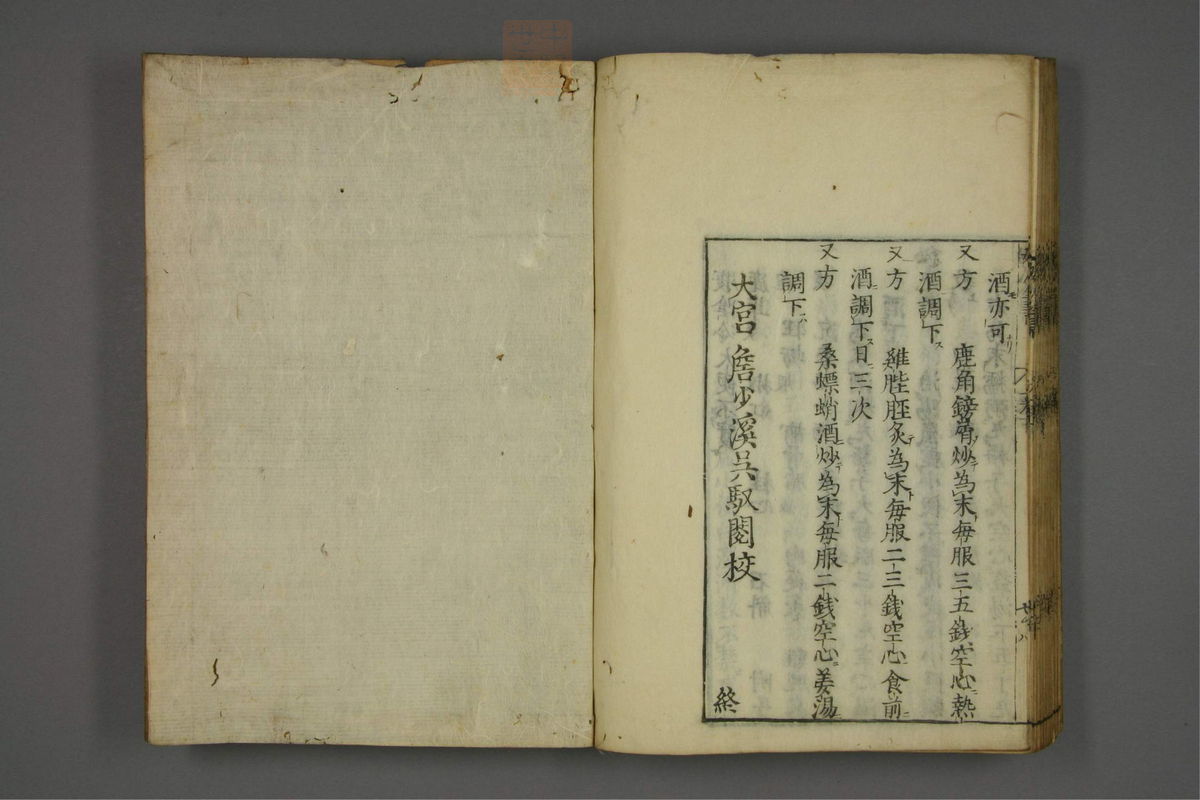 酒亦可
又方　鹿角鎊屑炒為末毎服三五銭空心熱
酒調下
又方　雞䏶胵炙為末毎服二三銭空心食前
酒調下日三次
又方　桑螵蛸酒炒為末毎服二銭空心姜湯
調下
大宮詹少溪呉馭閱校
終